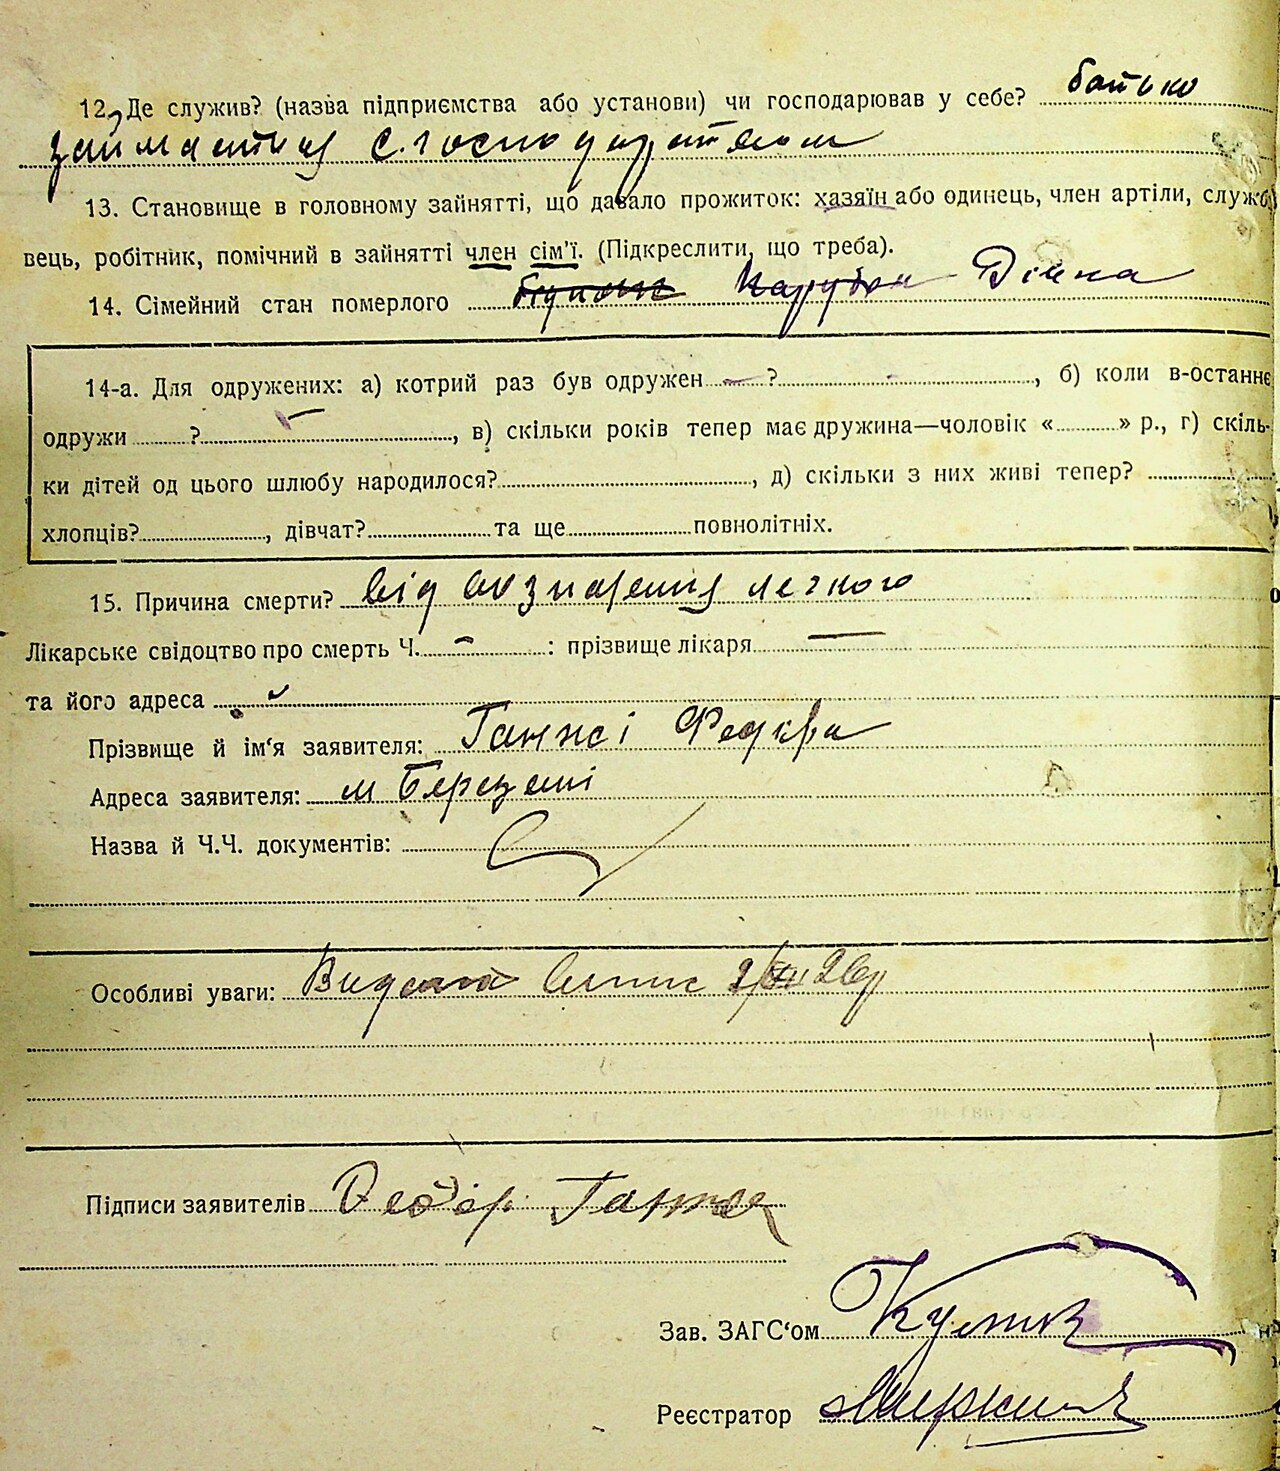 12. Де служив? (назва підприємства або установи) чи господарював у себе? батько
займаетця с. господарством
13. Становище в головному зайнятті, що давало прожиток: хазяїн або одинець, член артіли, служб
вець, робітник, помічний в зайнятті член сім'ї. (Підкреслити, що треба).
14. Сімейний стан померлого Парубок Дівка
14-а. Для одружених: а) котрий раз був одружен ? , б) коли в-останнє
одружи ? , в) скільки років тепер має дружина—чоловік « » р., г) скіль-
ки дітей од цього шлюбу народилося? , д) скільки з них живі тепер?
хлопців? , дівчат? та ще повнолітніх.
15. Причина смерти? від легкого
Лікарське свідоцтво про смерть Ч. – : прізвище лікаря —
та його адреса
Прізвище й ім'я заявителя: Ганжі Федкра
Адреса заявителя: м Березані
Назва й Ч.Ч. документів:
Особливі уваги: Видана
Підписи заявителів Федір Ганжа
Зав. ЗАГС'ом
Реєстратор